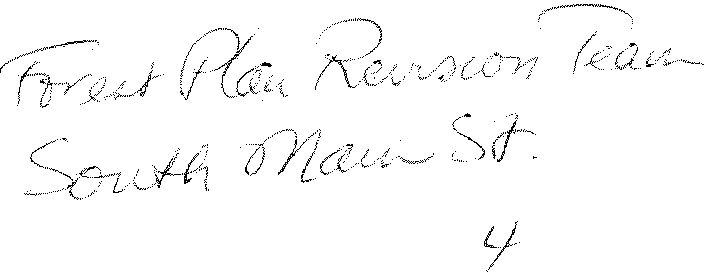 Forest Plan Revision Team
South Main St.
4